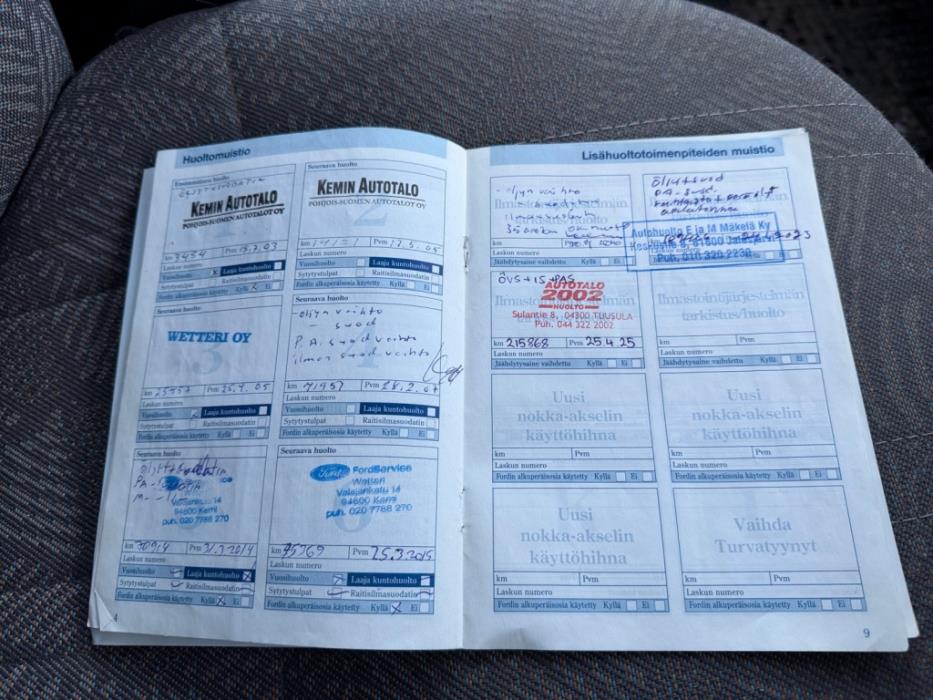 Huoltomuistio
Ensimmäinen huolto
KEMIN AUTOTALO
POHJOIS-SUOMEN AUTOTALOT OY
km 3454 Pvm 15.7.03
Laskun numero
Vuosihuolto Laaja kuntohuolto
Sytytystulpat Raitisilmasuodatin
Fordin alkuperäisosia käytetty Kyllä Ei
Seuraava huolto
KEMIN AUTOTALO
POHJOIS-SUOMEN AUTOTALOT OY
km Pvm 12.5.05
Laskun numero
Vuosihuolto Laaja kuntohuolto
Sytytystulpat Raitisilmasuodatin
Fordin alkuperäisosia käytetty Kyllä Ei
WETTERI OY
km Pvm
Laskun numero
Vuosihuolto Laaja kuntohuolto
Fordin alkuperäisosia käytetty Kyllä Ei
Seuraava huolto
- öljyn vaihto
- suod
P.A. suod vaihto
ilman suod vaihto
km 71957 Pvm 28.2.07
Laskun numero
Vuosihuolto Laaja kuntohuolto
Sytytystulpat Raitisilmasuodatin
Fordin alkuperäisosia käytetty Kyllä Ei
Seuraava huolto
94600 Kemi
puh. 020 7788 270
km Pvm 31.3.2014
Laskun numero
Vuosihuolto Laaja kuntohuolto
Sytytystulpat Raitisilmasuodatin
Fordin alkuperäisosia käytetty Kyllä Ei
Seuraava huolto
Ford FordService
Wetteri
Valajankatu 14
94600 Kemi
puh. 020 7788 270
km 95369 Pvm 25.3.2015
Laskun numero
Vuosihuolto Laaja kuntohuolto
Sytytystulpat Raitisilmasuodatin
Fordin alkuperäisosia käytetty Kyllä Ei
4
Lisähuoltotoimenpiteiden muistio
- öljyn vaihto
km
Laskun numero
Jäähdytysaine vaihdettu Kyllä Ei
Öljy+suod
PA-suod.
Autohuolto E ja M Mäkelä Ky
Puh. 010 320 2230
ÖVS+IS+PAS
AUTOTALO
2002
HUOLTO
Sulantie 8, 04300 TUUSULA
Puh. 044 322 2002
km 215868 Pvm 25.4.25
Laskun numero
Jäähdytysaine vaihdettu Kyllä Ei
Ilmastointijärjestelmän
tarkistus/huolto
km Pvm
Laskun numero
Jäähdytysaine vaihdettu Kyllä Ei
Uusi
nokka-akselin
käyttöhihna
km Pvm
Laskun numero
Fordin alkuperäisosia käytetty Kyllä Ei
Uusi
nokka-akselin
käyttöhihna
km Pvm
Laskun numero
Fordin alkuperäisosia käytetty Kyllä Ei
Uusi
nokka-akselin
käyttöhihna
km Pvm
Laskun numero
Fordin alkuperäisosia käytetty Kyllä Ei
Vaihda
Turvatyynyt
km Pvm
Laskun numero
Fordin alkuperäisosia käytetty Kyllä Ei
9